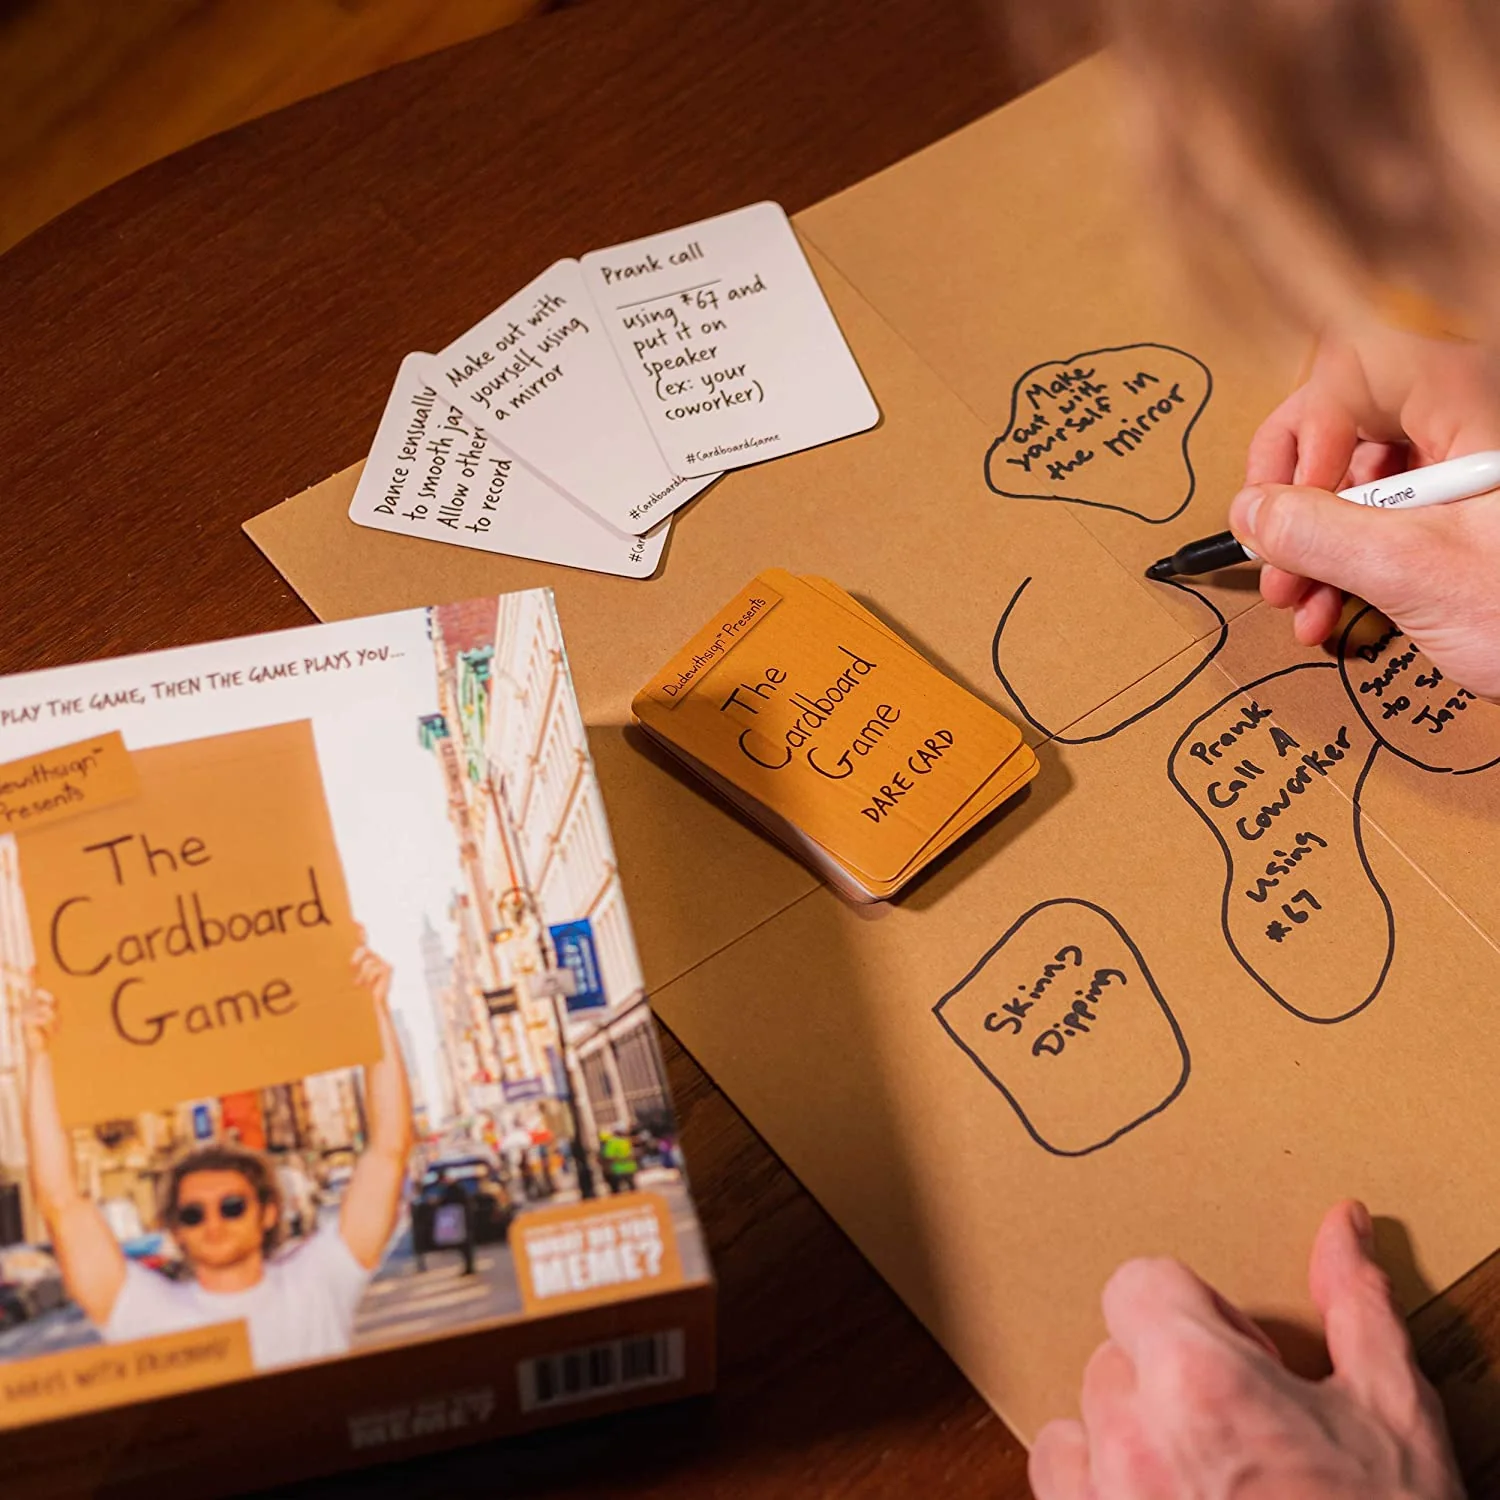 Prank call
using *67 and
put it on
speaker
(ex: your
coworker)
#CardboardGame
Make out with
yourself using
a mirror
#Cardboard
Dance sensually
to smooth jaz
Allow other
to record
#Car
Make
out with
yourself in
the mirror
Game
Dudewithsign™ Presents
The
Cardboard
Game
DARE CARD
Prank
Call A
Coworker
using
*67
to
Jazz
Skinny
Dipping
PLAY THE GAME, THEN THE GAME PLAYS YOU...
ewithsign™
Presents
The
Cardboard
Game
WHAT DO YOU
MEME?
WHAT DO YOU
MEME?